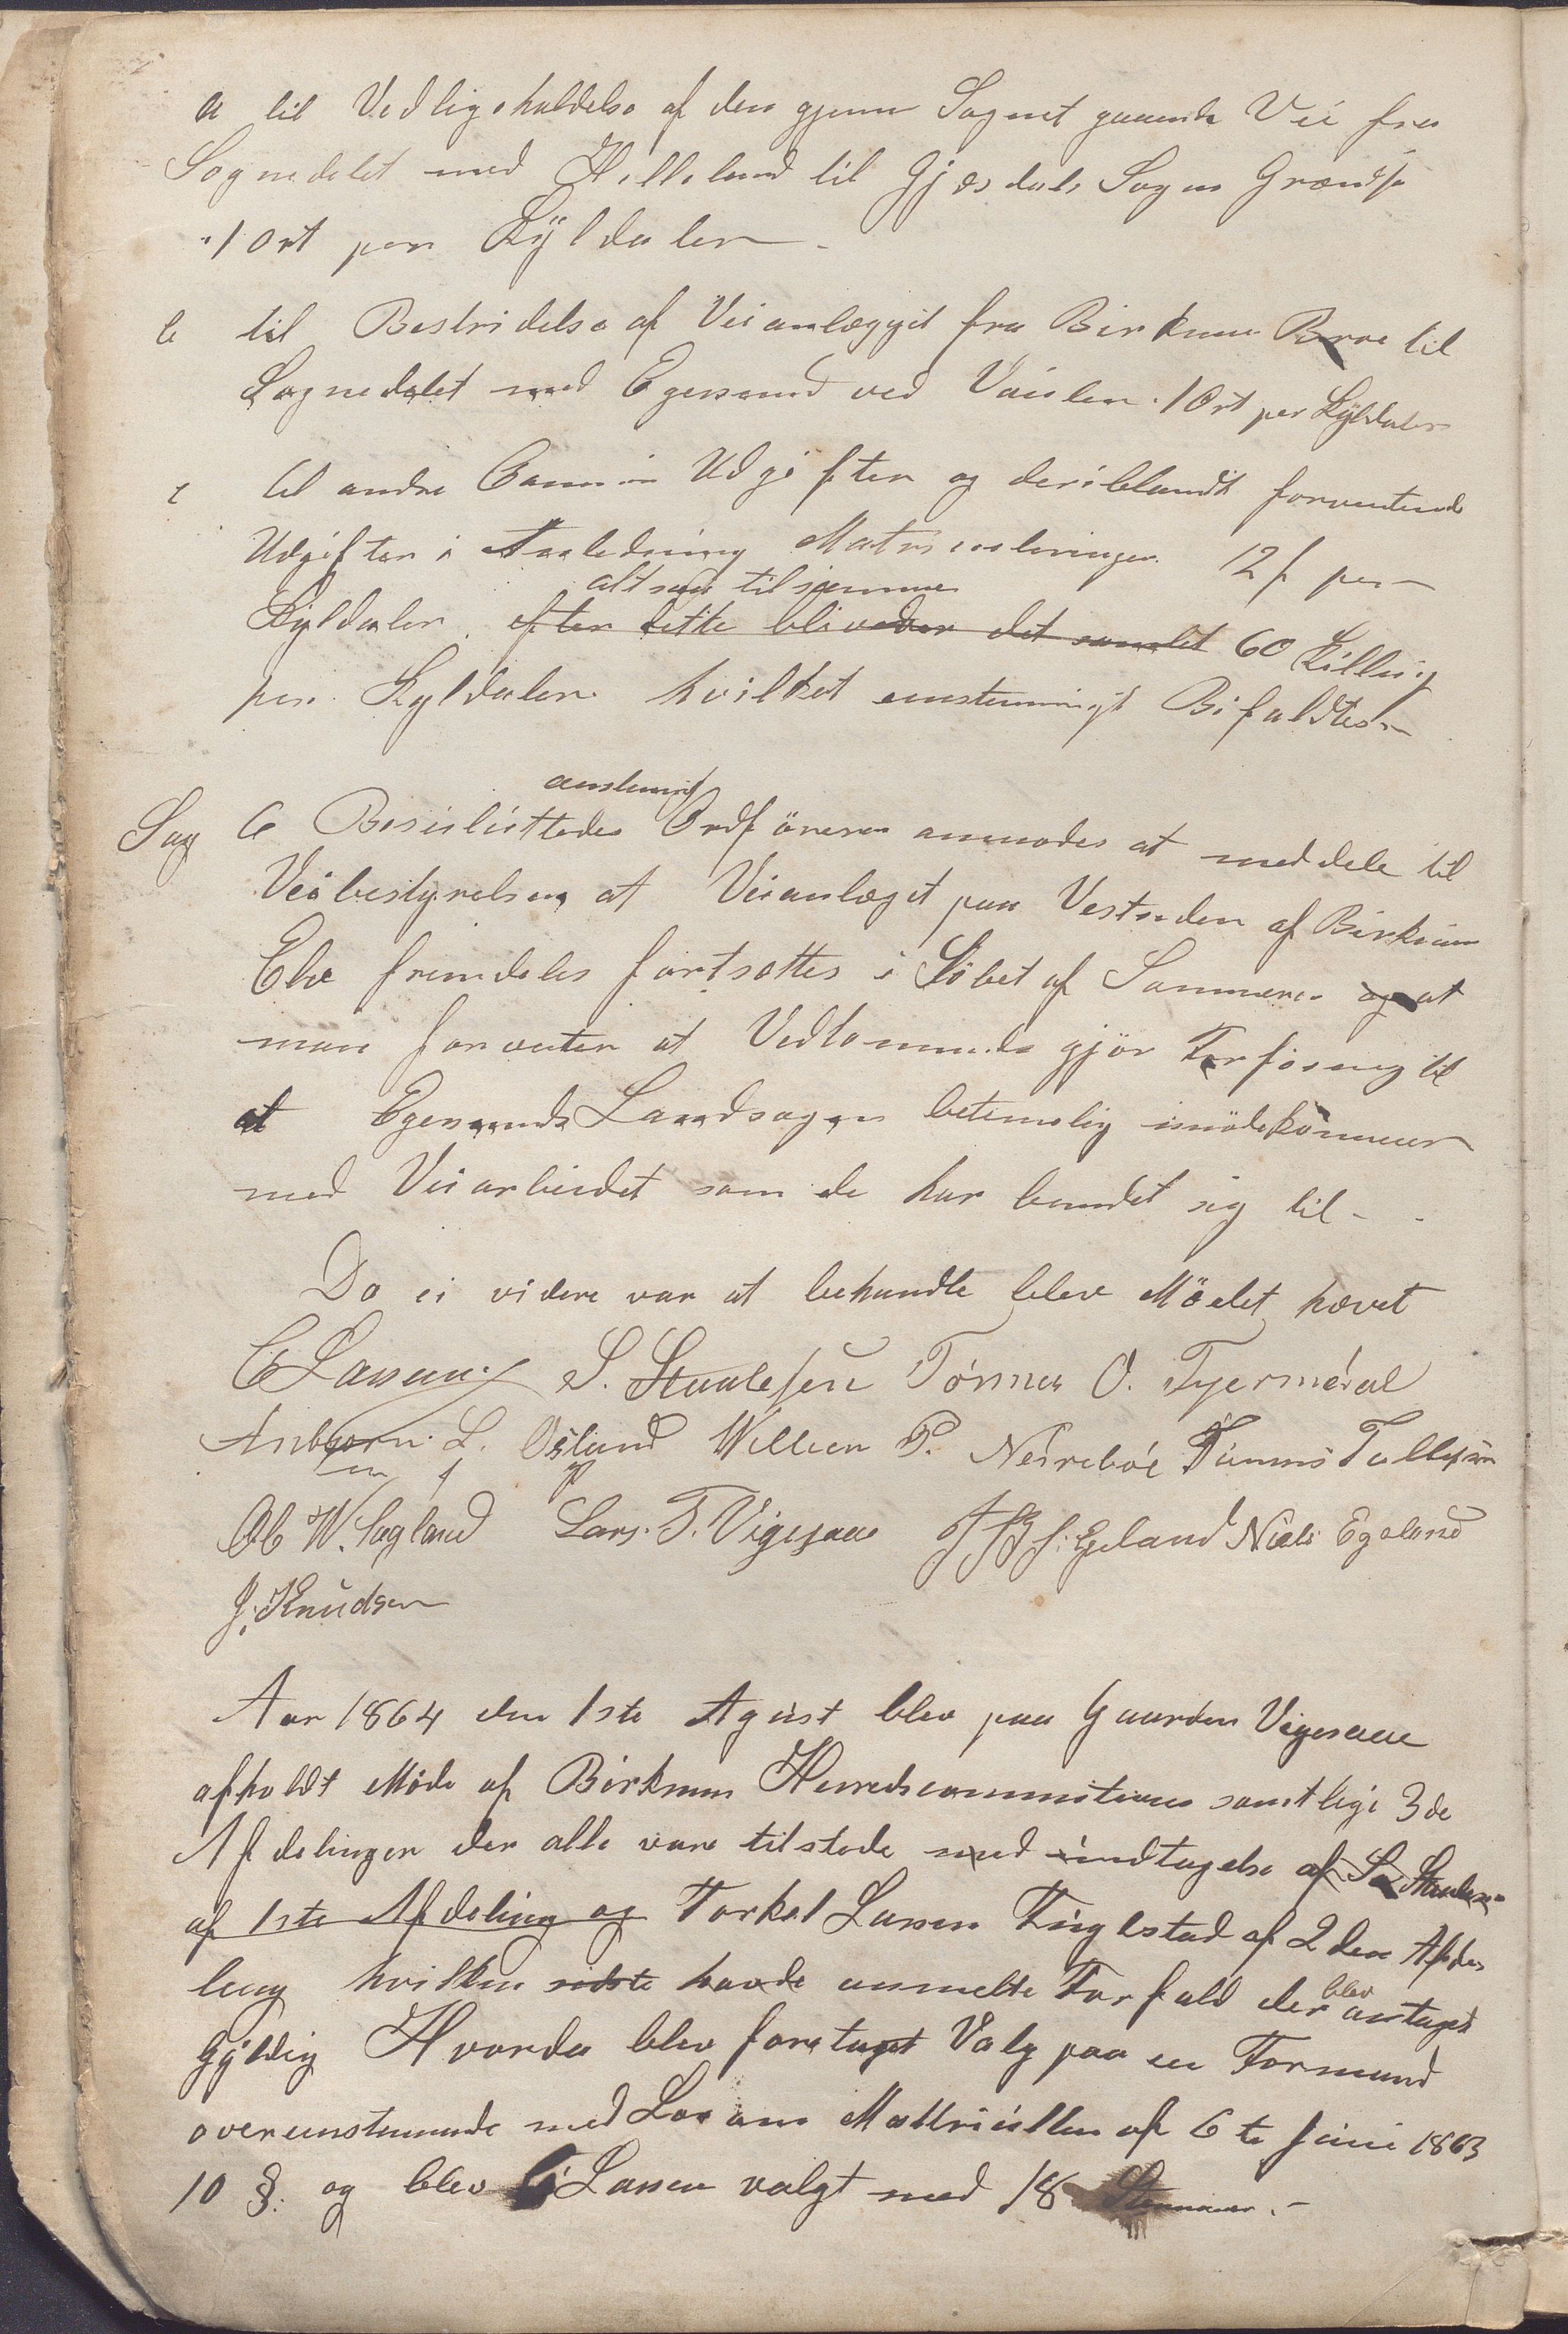 a til Vedligeholdelse af den gjennem Sognet gaaende Vei fra
Sognedelet med Helleland til Gjesdals Sogns Grændse
1 Ort per Skyldaler
b til Bestridelse af Veianlægget fra Birkrem Broe til
Sognedelet med Egersund ved 1 Ort per Skyldaler
c til andre Udgifter og deriblandt forventende
Udgifter i Anledning Matrieuleringen 12 s per
altsaa tilsammen
Skyldaler. efter dette bliver det samlet 60 Skilling
per Skyldaler hvilket eenstemmigt Bifaldtes
eenstemmigt
Sag 6 Besluttedes Ordføreren anmodes at meddele til
Veibestyrelsen at Veianlæget paa Vestsiden af Birkrem
Elv fremdeles fortsættes i Løbet af Sommeren og at
man forventer at Vedkommende gjør Forføining til
at Egersunds Landsogn betimelig imødekommer
med Veiarbeidet som de har bundet sig til
Da ei videre var at behandle blev Mödet hævet
C Lassen S. Staalesen Tønnes O. Tjermdal
Asbjørn L. Østund Willem P. Nedrebøe Tønnes Tollefsen
Ole W. Lagland Lars. T. Vigesaae Egeland Niels Egeland
J. Knudsen
Aar 1864 den 1ste Agust blev paa Gaarden Vigesaae
afholdt Møde af Birkrem Herredscommissionens samtlige 3de
Afdelinger der alle vare tilstede med undtagelse af S. Staalesen
af 1ste Afdeling og Torkel Lassen Finglstad af 2den Afde
ling hvilken sidste havde anmelte Forfald der blev antaget
Gyldig Hvorda blev foretaget Valg paa en Formand
overeenstemmende med Lov om Mattriullen af 6te Juni 1863
10 §. og blev C Lassen valgt med 18 Stemmer.